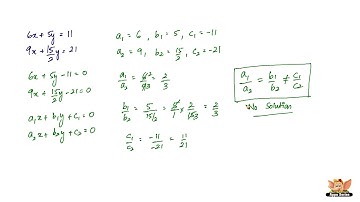 6x + 5y = 11
9x + 15/2 y = 21
6x + 5y - 11 = 0
9x + 15/2 y - 21 = 0
a₁x + b₁y + c₁ = 0
a₂x + b₂y + c₂ = 0
a₁ = 6 , b₁ = 5 , c₁ = -11
a₂ = 9, b₂ = 15/2, c₂ = -21
a₁/a₂ = 6²/9₃ = 2/3
b₁/b₂ = 5/15/2 = 5/1 × 2/15₃ = 2/3
c₁/c₂ = -11/-21 = 11/21
a₁/a₂ = b₁/b₂ ≠ c₁/c₂
No Solution